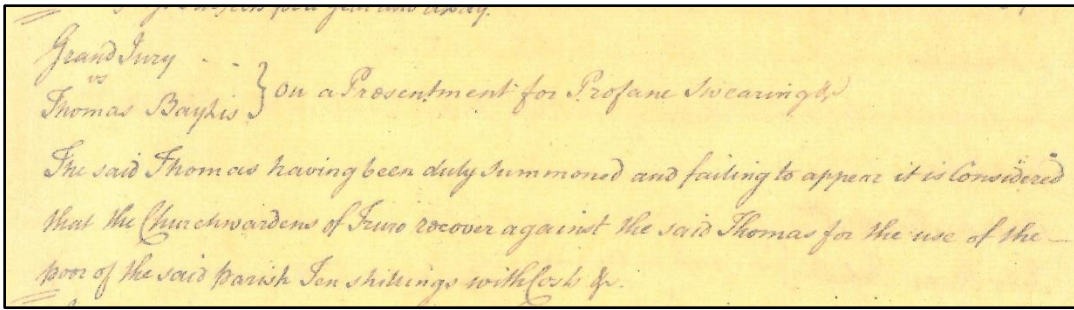 Grand Jury - -
vs
Thomas Baylis } on a Presentment for Profane Swearing &c
The said Thomas having been duly Summoned and failing to appear it is Considered
that the Churchwardens of Truro recover against the said Thomas for the use of the —
poor of the said parish Ten shillings with Costs &c.